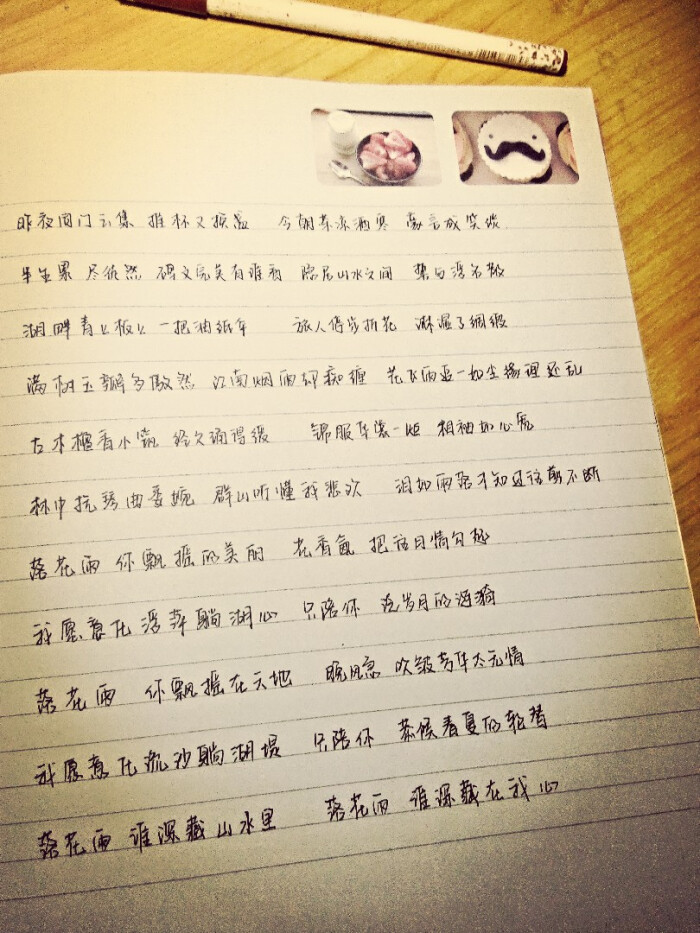 昨夜同门云集 推杯又换盏 今朝茶凉酒寒 豪言成笑谈
半生累 尽徒然 碑文完美有谁看 隐居山水之间 誓与浮名散
湖畔青石板上 一把油纸伞 旅人停步折花 淋湿了绸缎
满树玉瓣多傲然 江南烟雨却痴缠 花飞雨追一如尘缘理还乱
古木檀香小筑 经久诵得缓 锦服华裳一炬 粗袖如心宽
林中抚琴曲委婉 群山听懂我悲欢 泪如雨落才知过往剪不断
落花雨 你飘摇的美丽 花香氤 把往日情勾起
我愿意化浮萍躺湖心 只陪你 泛岁月的涟漪
落花雨 你飘摇在天地 晚风急 吹皱芳华太无情
我愿意化流沙躺湖堤 只陪你 恭候春夏的轮替
落花雨 谁深藏山水里 落花雨 谁深藏在我心